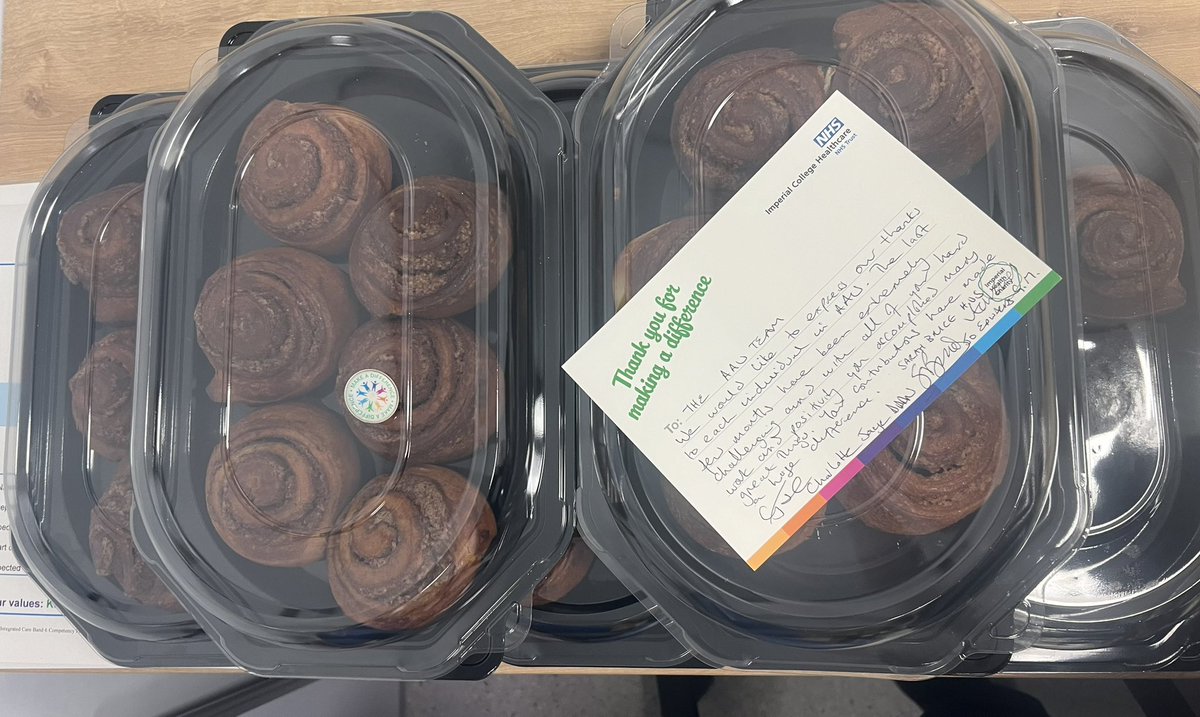 NHS
Imperial College Healthcare
NHS Trust
Thank you for
making a difference
To: THE AAW TEAM
We would like to express our thanks
to each individual in AAW. The last
few months have been extremely
challenging and with all of your hard
work and positivity you accomplished many
great things. Your contributions have made
a huge difference.
SARAH BRICE
Charlotte
Jo Edwards
Imperial
Health
Charity
MAKE A DIFFERENCE
MAKE A DIFFERENCE
ur values: K
Integrated Care Band 6 Competency